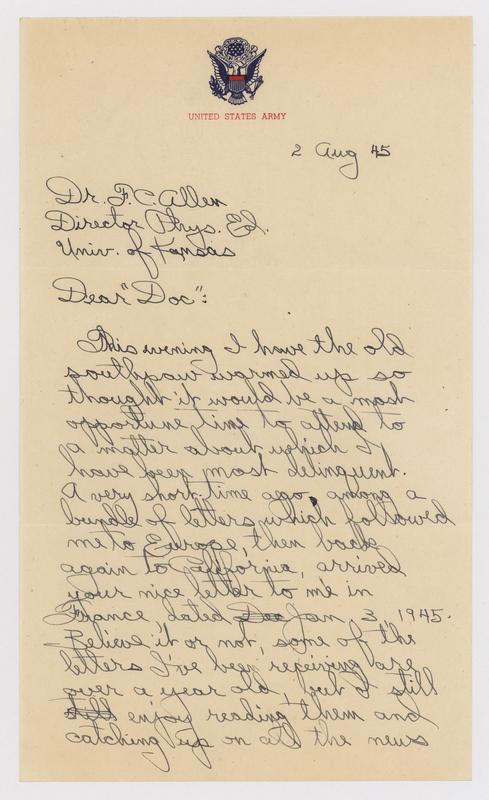 UNITED STATES ARMY
2 Aug 45
Dr. F. C. Allen
Director Phys. Ed.
Univ. of Kansas
Dear "Doc":
This evening I have the old
southpaw warmed up so
thought it would be a most
opportune time to attend to
a matter about which I
have been most delinquent.
A very short time ago, among a
bundle of letters which followed
me to Europe, then back
again to California, arrived
your nice letter to me in
France, dated Dec Jan 3, 1945.
Believe it or not, some of the
letters I've been receiving are
over a year old, but I still
still enjoy reading them and
catching up on all the news